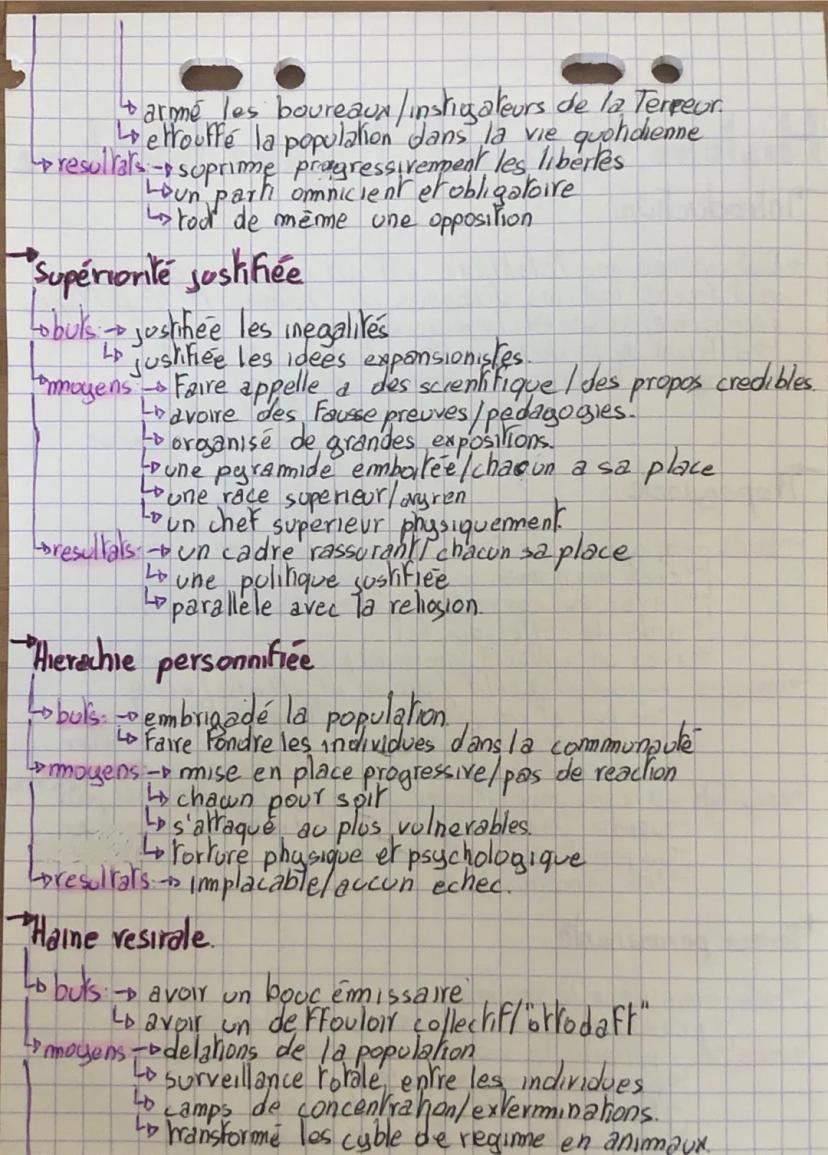 ↳ armé les boureaux/instigateurs de la Terreur.
↳ etrouffé la population dans la vie quotidienne
↳ resultats → suprime progressivement les libertés
↳ un parti omnicient et obligatoire
↳ tout de même une opposition
→ Supériorité justifiée
↳ buts → justifiée les inegalités
↳ justifiée les idées expansionistes.
↳ moyens → Faire appelle a des scientifique / des propos credibles.
↳ avoire des fausse preuves/pedagogies.
↳ organisé de grandes expositions.
↳ une pyramide emboitée/chacun a sa place
↳ une race superieur/aryren
↳ un chef superieur physiquement.
↳ resultats → un cadre rassurant/ chacun sa place
↳ une politique justifiée
↳ parallèle avec la religion.
→ Hierachie personnifiée
↳ buts: → embrigadé la population
↳ faire fondre les individues dans la communauté
↳ moyens → mise en place progressive/pas de reaction
↳ chacun pour soir
↳ s'attaqué au plus vulnerables.
↳ torture physique et psychologique
↳ resultats → implacable/aucun echec.
→ Haine vesirale.
↳ buts: → avoir un bouc émissaire
↳ avoir un deffouloir collectif/
↳ moyens → delations de la population
↳ surveillance totale, entre les individues
↳ camps de concentration/exterminations.
↳ transformé les cyble de regime en animaux.